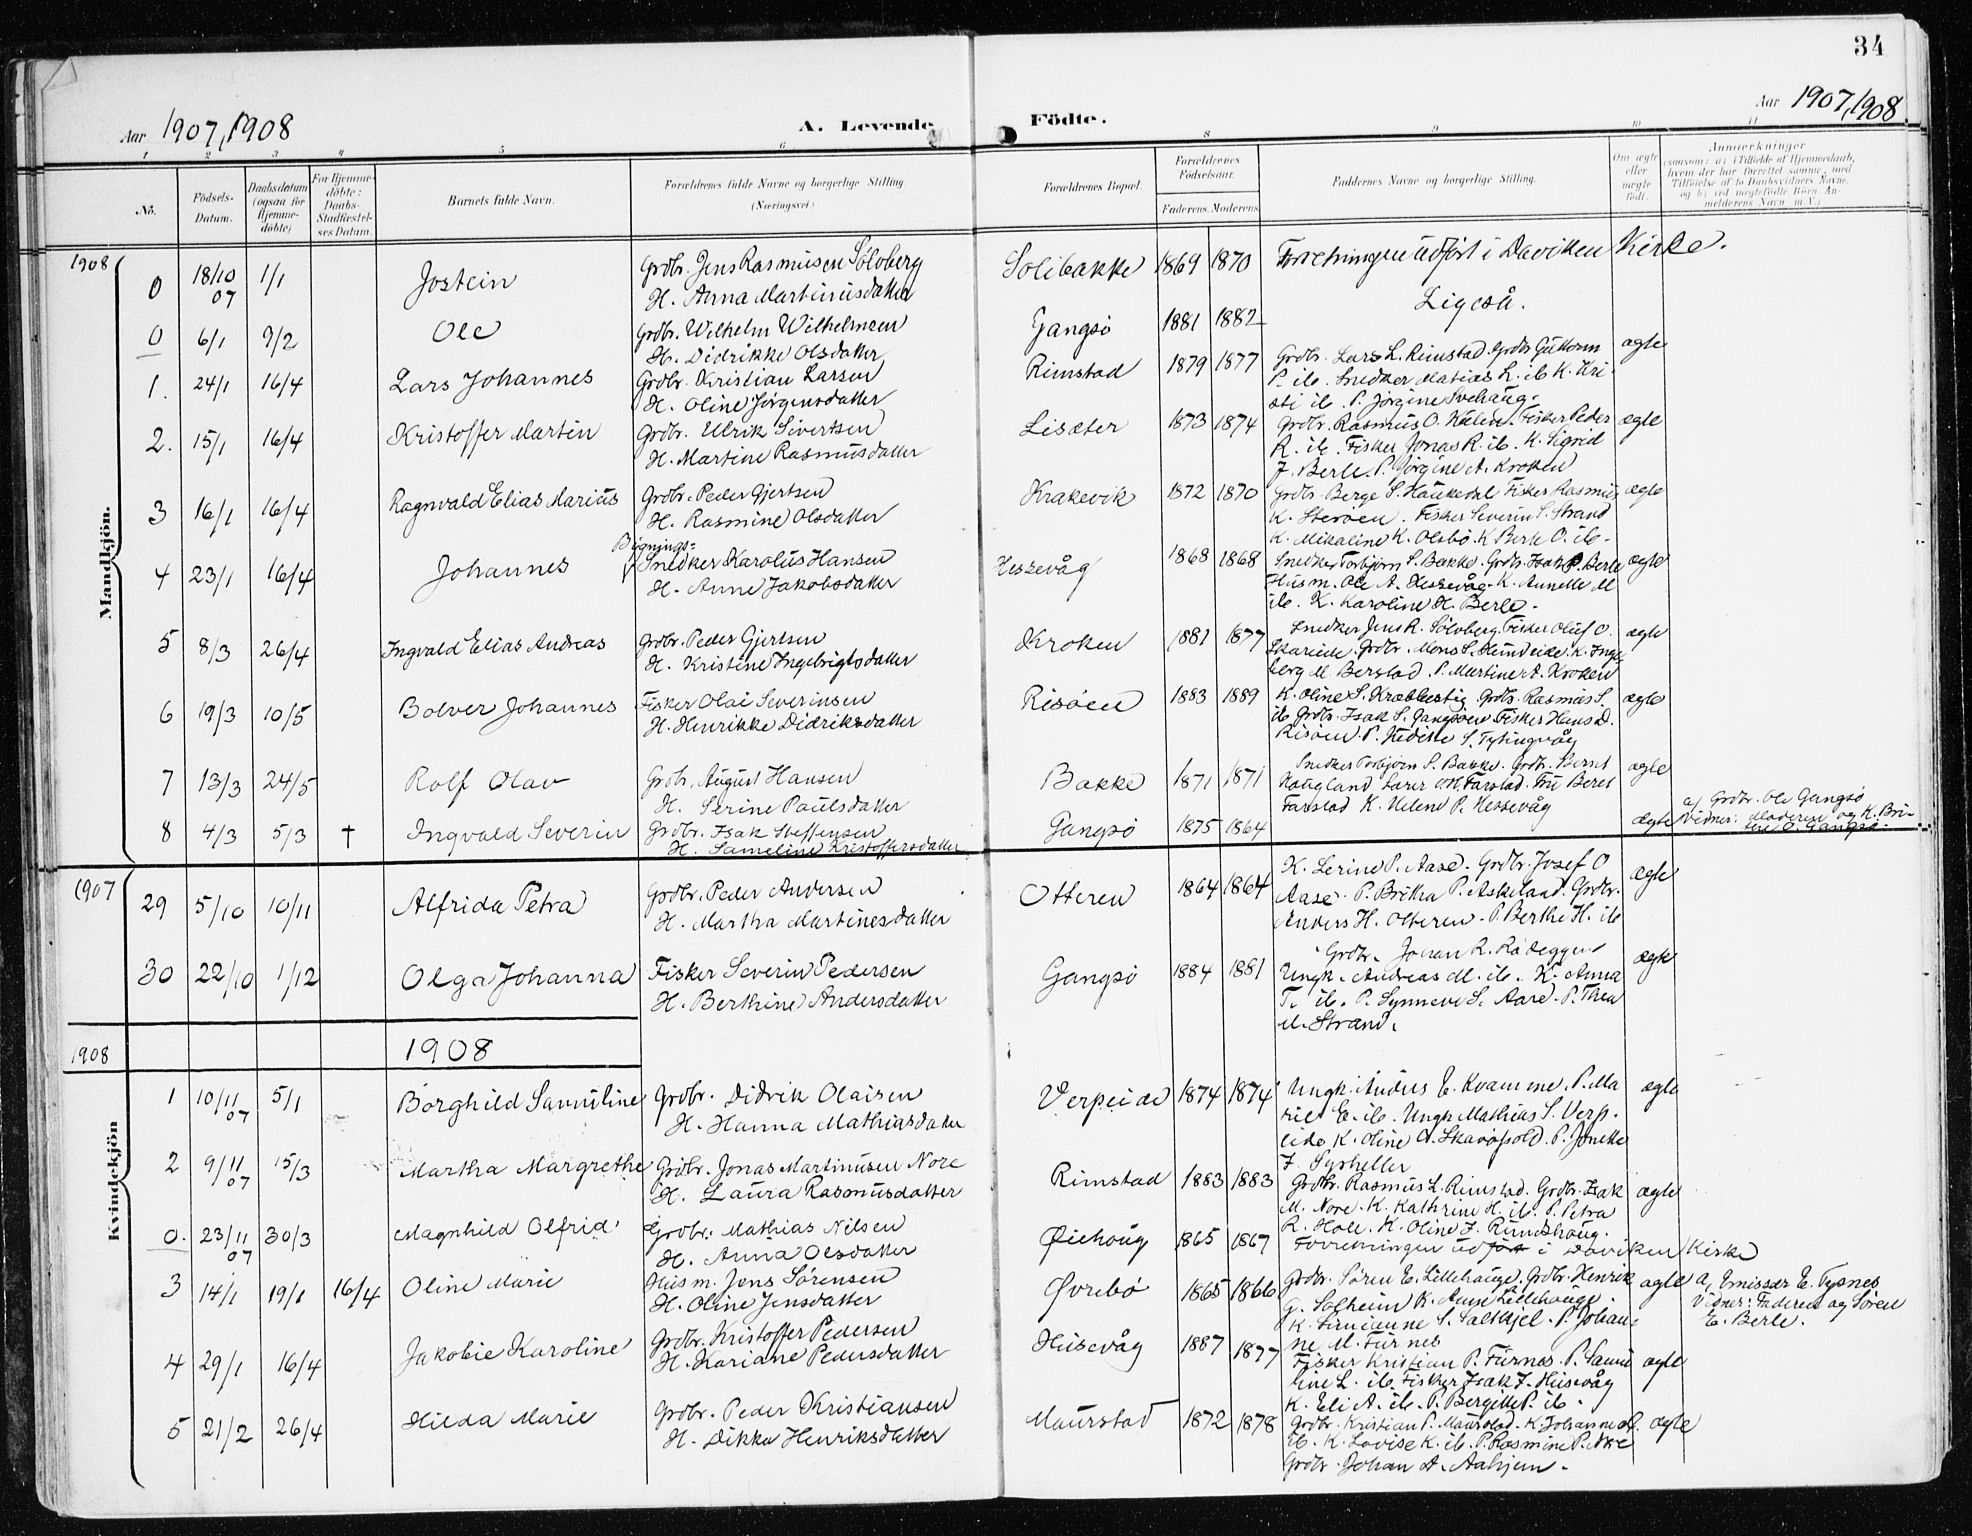 34
Aar 1907, 1908
A. Levende Födte.
Aar 1907, 1908
1 2 3 4 5 6 8 9 10 11
No.
Födsels-Datum.
Daabsdatum (ogsaa for Hjemmedöbte)
For Hjemmedöbte: Daabs-Stadfæstelses Datum.
Barnets fulde Navn.
Forældrenes fulde Navne og borgerlige Stilling (Næringsvei)
Forældrenes Bopæl.
Forældrenes Födselsaar.
Faderens. Moderens
Faddernes Navne og borgerlige Stilling.
Om ægte eller uægte födt.
Anmerkninger
(saasom: a) i Tilfælde af Hjemmedaab, hvem der har forrettet samme, med Tilföielse af to Daabsvidners Navne. og b) ved uægtefödte Börn Anmelderens Navn m. V.)
Mandkjön.
1908
0 18/10 07 1/1 Jostein Grdbr. Jens Rasmusen Sölvberg Solibakke 1869 1870 Forretningen udfört i Daviken Kirke.
H. Anna Martinusdatter
0 6/1 9/2 Ole Grdbr. Wilhelm Wilhelmsen Gangsö 1881 1882 Ligeså.
H. Didrikke Olsdatter
1. 24/1 16/4 Lars Johannes Grdbr. Kristian Larsen Rimstad 1879 1877 Grdbr. Lars L. Rimstad. Grdbr Guttorm ægte
H. Oline Jörgensdatter P. ib. Snedker Matias L. ib K. Kri-
sti ib. P. Jörgine Svehaug.
2. 15/1 16/4 Kristoffer Martin Grdbr. Ulrik Sivertsen Lisæter 1873 1874 Grdbr. Rasmus O. Kålen. Fisker Peder ægte
H. Martine Rasmusdatter R. ib. Fisker Jonas R. ib. K. Sigrid
J. Berle. P. Jörgine A. Kroken
3 16/1 16/4 Ragnvald Elias Marius Grdbr. Peder Gjertsen Krakevik 1872 1870 Grdbr. Berge S. Haukedal Fisker Rasmus ægte
H. Rasmine Olsdatter K. Steröen. Fisker Severin S. Strand
K. Mikaline K. Olsbö. K Berte O. ib.
4 23/1 16/4 Johannes Bygnings-Snedker Karolus Hansen Hessevåg 1868 1868 Snedker Torbjörn S. Bakke. Grdbr. Isak P. Berle ægte
H. Anne Jakobsdatter Husm. Ole A. Hessevåg. K. Annette M
ib. K. Karoline H. Berle.
5 8/3 26/4 Ingvald Elias Andreas Grdbr. Peder Gjertsen Kroken 1881 1877 Snedker Jens R. Sölvberg. Fisker Oluf O. ægte
H. Kristine Ingebrigtsdatter Skareide. Grdbr. Mons S. Hundeide. K. Inge-
berg M. Berstad. P. Martine A. Kroken
6 19/3 10/5 Bolver Johannes Fisker Olai Severinsen Risöen 1883 1889 K. Oline S. Krabbestig Grdbr. Rasmus S. ægte
H. Henrikke Didriksdatter ib Grdbr. Isak S. Gangsöen Fisker Hans D.
Risöen. P. S. Tytingvåg
7 13/3 24/5 Rolf Olav Grdbr. August Hansen Bakke 1871 1871 Snedker Torbjörn S. Bakke. Grdbr. Bernt ægte
H. Serine Paulsdatter Haugland Lærer M. Farstad. Fru Beret
Farstad K. Helene P. Hessevåg
8 4/3 5/3 † Ingvald Severin Grdbr. Isak Steffensen Gangsö 1875 1864 ægte a) Grdbr. Ole Gangsö
H. Sameline Kristoffersdatter Vidner: Moderen og K. Bri-
O. Gangsö.
Kvindekjön
1907
29 5/10 10/11 Alfrida Petra Grdbr. Peder Andersen Otteren 1864 1864 K. Lerine P. Aase. Grdbr. Josef O ægte
H. Martha Martinesdatter Aase. P. Britha P. Askeland. Grdbr.
Anders H. Otteren. P. Berthe H. ib
30 22/10 1/12 Olga Johanna Fisker Severin Pedersen Gangsö 1884 1881 Grdbr. Johan R. Rödeggen ægte
H. Berthine Andersdatter Ungk. Andreas M. ib. K. Anna
T. ib. P. Synneve S. Aare. P. Thea
M. Strand.
1908 1908
1 10/11 07 5/1 Borghild Samuline Grdbr. Didrik Olaisen Verpeide 1874 1874 Ungk. E. Kvamme. P. Ma- ægte
H. Hanna Mathiasdatter E. ib. Ungk Mathias S. Verp-
eide K. Oline P.
J. Sørheller
2 9/11 07 15/3 Martha Margrethe Grdbr. Jonas Martinusen Nore Rimstad 1883 1883 Grdbr. Rasmus L. Rimstad. Grdbr. Isak ægte
H. Laura Rasmusdatter M. Nore. K. Kathrine H. ib. P. Petra
R. Hole. K. Oline J. Rundehaug.
0. 23/11 07 30/3 Magnhild Olfrid Grdbr. Mathias Nilsen Øiehoug 1865 1867 Forretningen udfört i Daviken Kirke
H. Anna Olsdatter
3 14/1 19/1 16/4 Oline Marie Husm. Jens Sörensen Øvrebö 1865 1866 Grdbr. Sören E. Lillehauge. Grdbr. Henrik ægte a) Emissær E. Tysnes
H. Oline Jensdatter G. Solheim K. Anne Lillehouge. Vidner: Faderen og Sören
K. S. Saltkjel. P. Johan- E. Berle.
ne M. Furnes
4 29/1 16/4 Jakobie Karoline Grdbr. Kristoffer Pedersen Husevåg 1887 1877 Fisker Kristian P. Furnes. P. Samu- ægte
H. Kariane Pedersdatter line L. ib. Fisker Isak J. Husevåg
K. Eli A. ib. P. Bergitte P. ib.
5 21/2 26/4 Hilda Marie Grdbr. Peder Kristiansen Maurstad 1872 1878 Grdbr. Kristian P. Maurstad. K. Johanne M. ægte
H. Dikka Henriksdatter ib. K. Lovise K. ib. P. Rasmine P. Nore
Grdbr. Johan A. Aahjem.